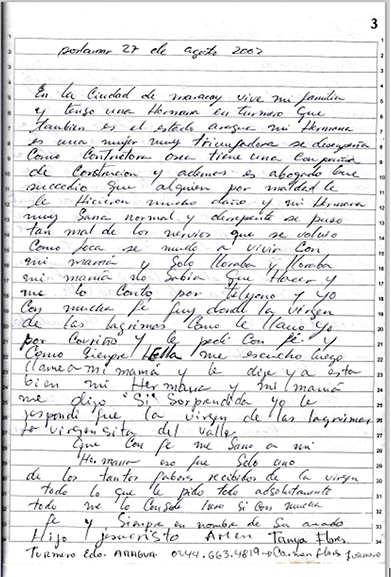 3
porlamar 27 de agosto 2002
En la Ciudad de maracay vive mi familia
y tengo una Hermana en turmero que
tambien es el estado aragua mi Hermana
es una mujer muy triunfadora se desempeña
Como Contrictora osea tiene una Conpañia
de Construcion y ademas es abogado
succedio que alguien por maldad le
le Hicieron mucho daño y mi Hermana
muy Sana normal y derrepente se puso
tan mal de los nervios que se volvio
Como loca se mudo a vivir Con
mi mamá y Solo lloraba y lloraba
mi mamá no Sabia Que Hacer y
me lo Conto por telefono y yo
Con mucha fe fuy donde la virgen
de las lagrimas Como le llamo yo
por Cariño y le pedi Con fe y
Como Siempre Ella me escucho luego
llame a mi mamá y le dije ya esta
bien mi Hermana y mi mamá
me dijo "Si" Sorprendida yo le
respondi que la virgen de las lagrimas
virgensita del valle
Que Con fe me Sano a mi
Hermana eso fue Solo uno
de los tantos fabores recibidos de la virgen
todo lo que le pido todo absolutamente
todo me lo Consede pero si Con mucha
fe y Siempre en nombre de Su amado
Hijo jesucristo Amen Tanya Flores.
TURMERO Edo. ARAGUA 0244.663.4819 Carmen Flores Turmero